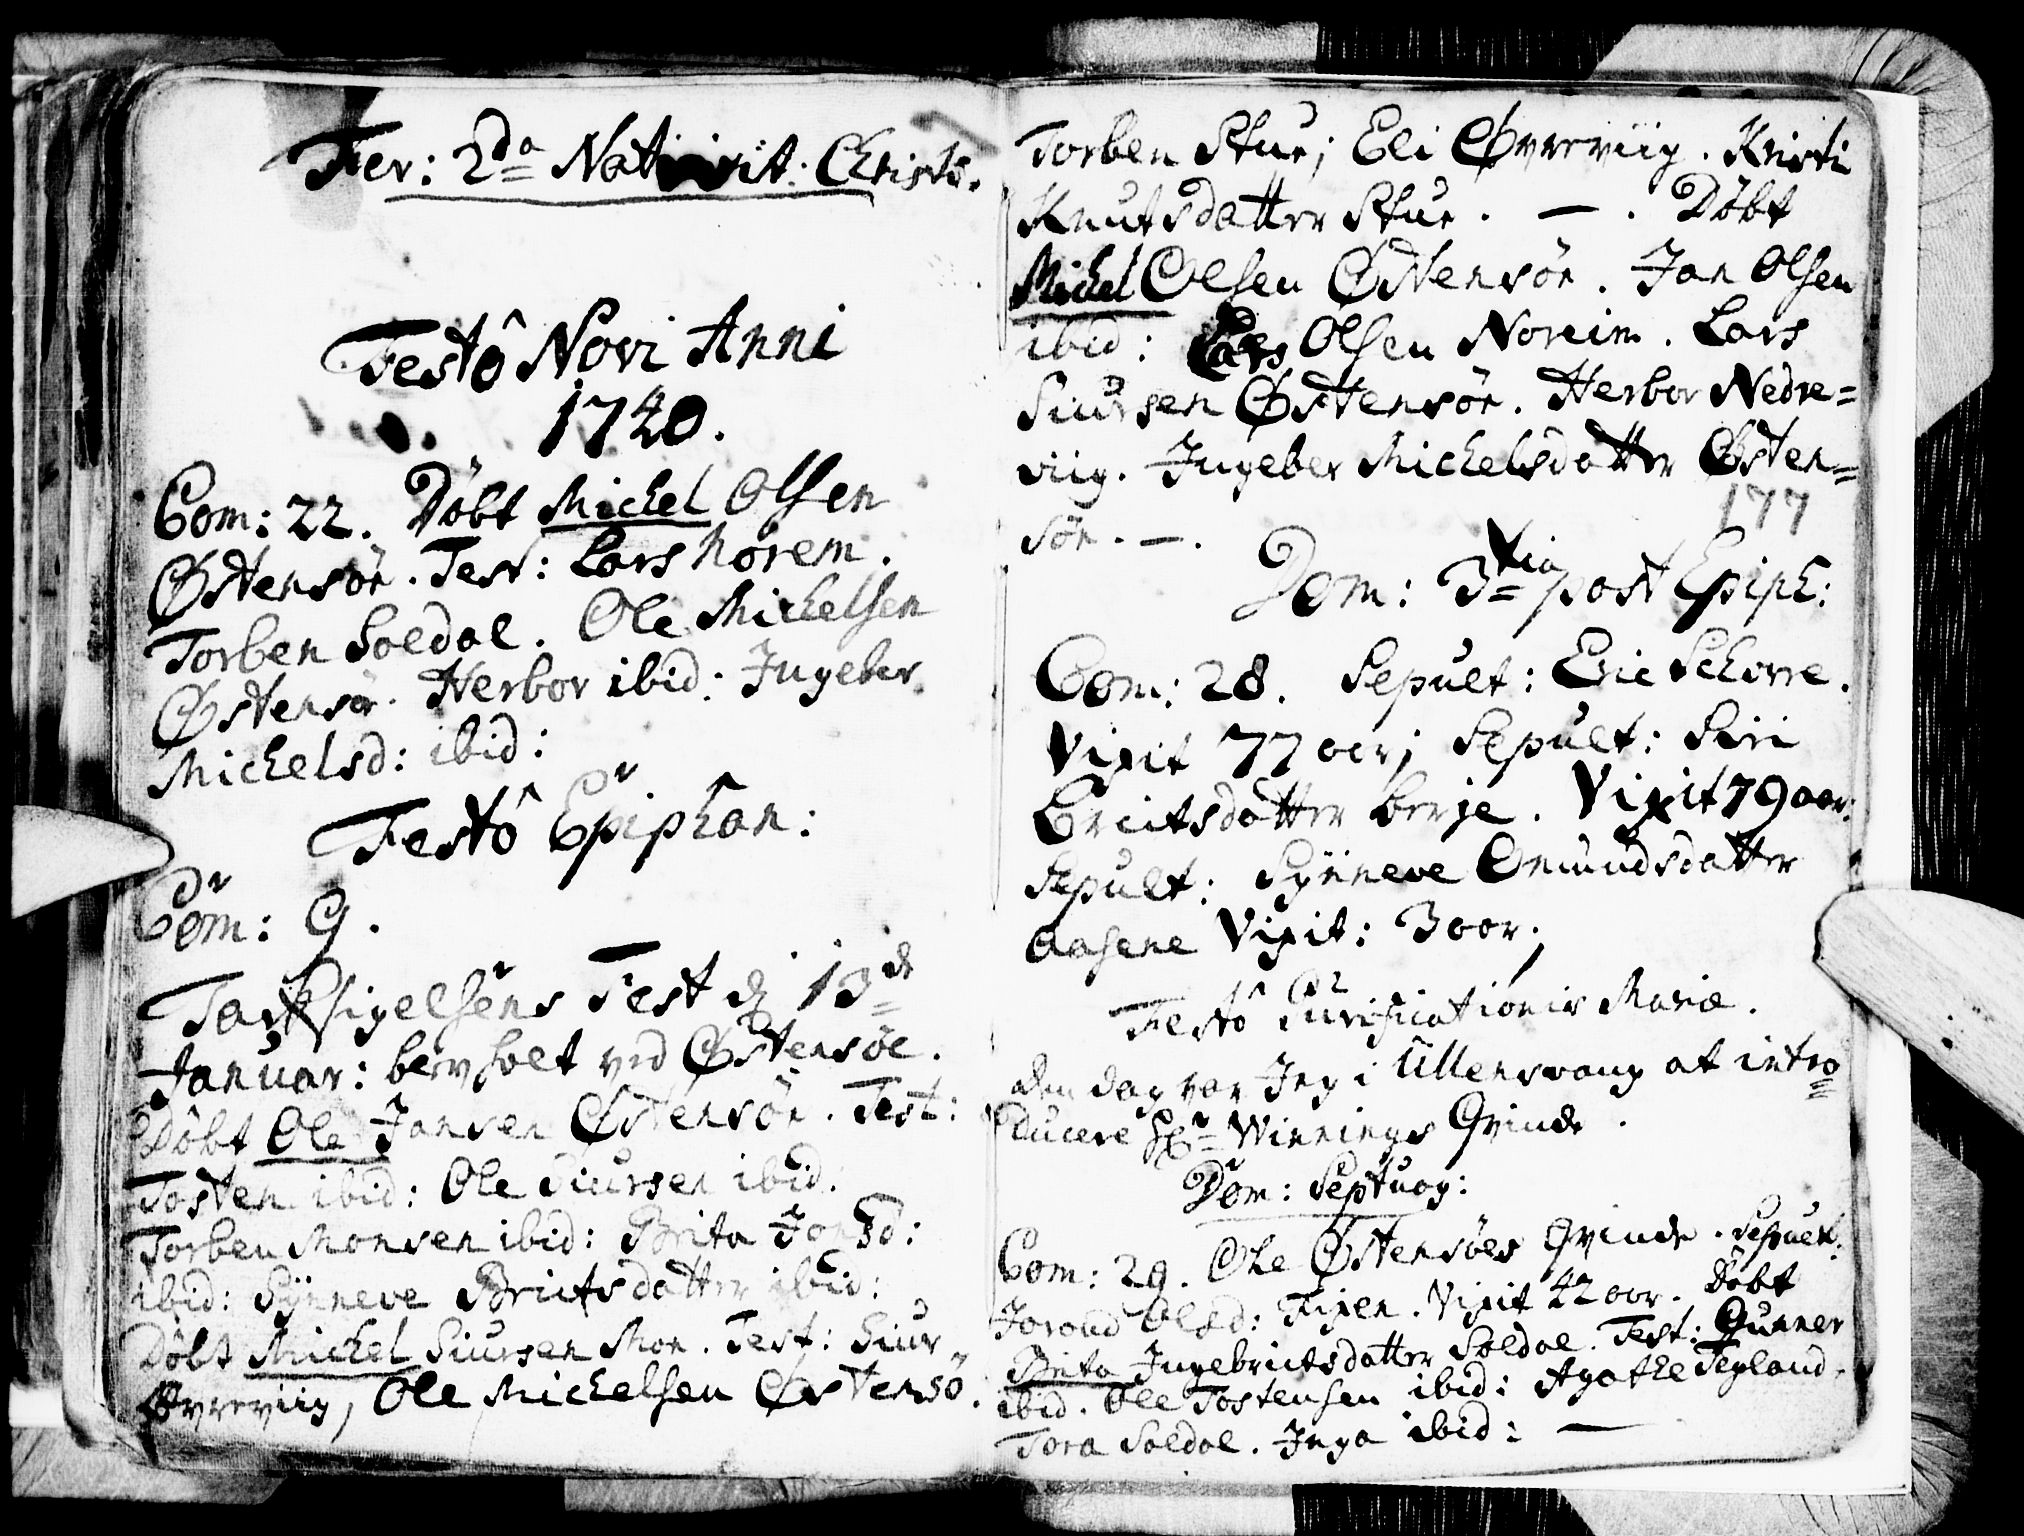 Fer: 2da Nativit: Christi.
Festô Novi Anni
1740.
Com: 22. Döbt Michel Olsen
Østensöe. Test: Lars Norem.
Torben Soldal. Ole Michelsen
Østensöe. Herbor ibid: Ingeber
Michelsd: ibid:
Festô Epiphan:
Com: 9.
Taksigelsens Fest d 13de
Januar: berholt ved Østensöe.
Döbt Ole Jansen Østensöe. Test:
Tosten ibid: Ole Siursen ibid.
Torben Monsen ibid: Brita Jonsd:
ibid: Sÿnneve Briitsdatter ibid:
Döbt Michel Siursen Mon. Test: Siur
Øvreviig, Ole Michelsen Østensö.
Torben Stue; Eli Øvreviig. Kristi
Knutsdatter Stue. — . Döbt
Michel Olsen Østensöe. Jan Olsen
ibid: Lars Olsen Noreim. Lars
Siursen Østensöe. Herbor Nedre=
viig. Ingeber Michelsdatter Østen=
177
söe. — .
Dom: 3tia post Epiph:
Com: 28. Sepult: Eric Schorre.
Vixit 77 aar; Sepult: Siri
Ericsdatter berje. Vixit 79 aar:
Sepult: Sÿnneve Omundsdatter
Aasene Vixit: 3 aar;
Festô Purificationis Mariæ.
den dag var Jeg i Ullensvang at intro=
ducere Hr Winnings Qvinde.
Dom: Septuag:
Com: 29. Ole Østensöes Qvinde. Sepult:
Joroud Olsd: Fixen. Vixit 42 aar. Döbt
Brita Ingebrictsdatter Soldal. Test: Gunner
ibid. Ole Tostensen ibid: Agathe Tegland.
Tora Soldal. Inga ibid: —